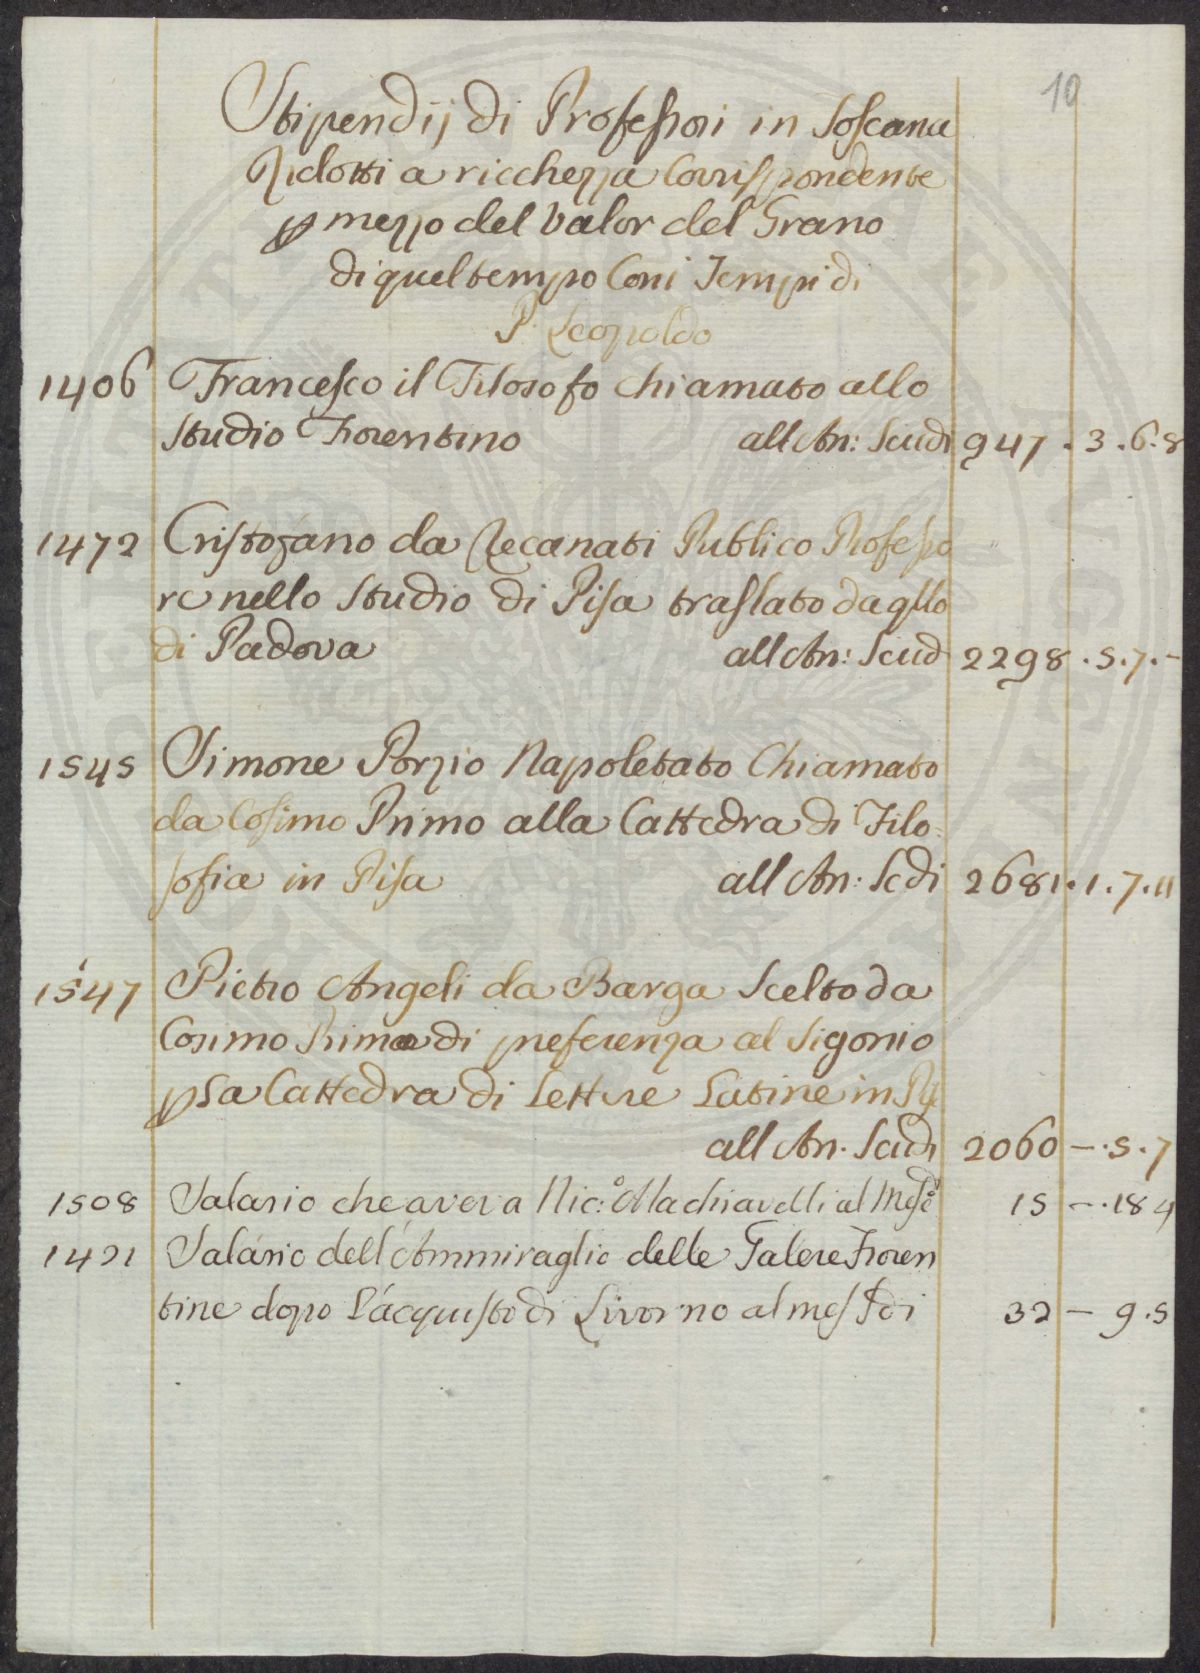 10
Stipendij di Professori in Toscana
Ridotti a ricchezza Corrispondente
p mezzo del valor del Grano
di quel tempo Con i Tempi di
P. Leopoldo
1406 Francesco il Filosofo chiamato allo
Studio Fiorentino all An: Scudi 947 . 3 . 6 . 8
1472 Cristofano da Recanati Publico Professo
re nello Studio di Pisa traslato da qllo
di Padova all An: Scud 2298 . 5 . 7 . -
1545 Simone Porzio Napoletato Chiamato
da Cosimo Primo alla Cattedra di Filo=
sofia in Pisa all An: Scdi 2681 . 1 . 7 . 11
1547 Pietro Angeli da Barga Scelto da
Cosimo Primo di preferenza al Sigonio
p la Cattedra di Lettere Latine in
all An. Scudi 2060 - . 5 . 7
1508 Salario che aveva Nic:o Machiavelli al Mese 15 - . 18 4
1421 Salario dell Ammiraglio delle Galere Fioren
tine dopo l'acquisto di Livorno al mes fdi 32 - 9 . 5